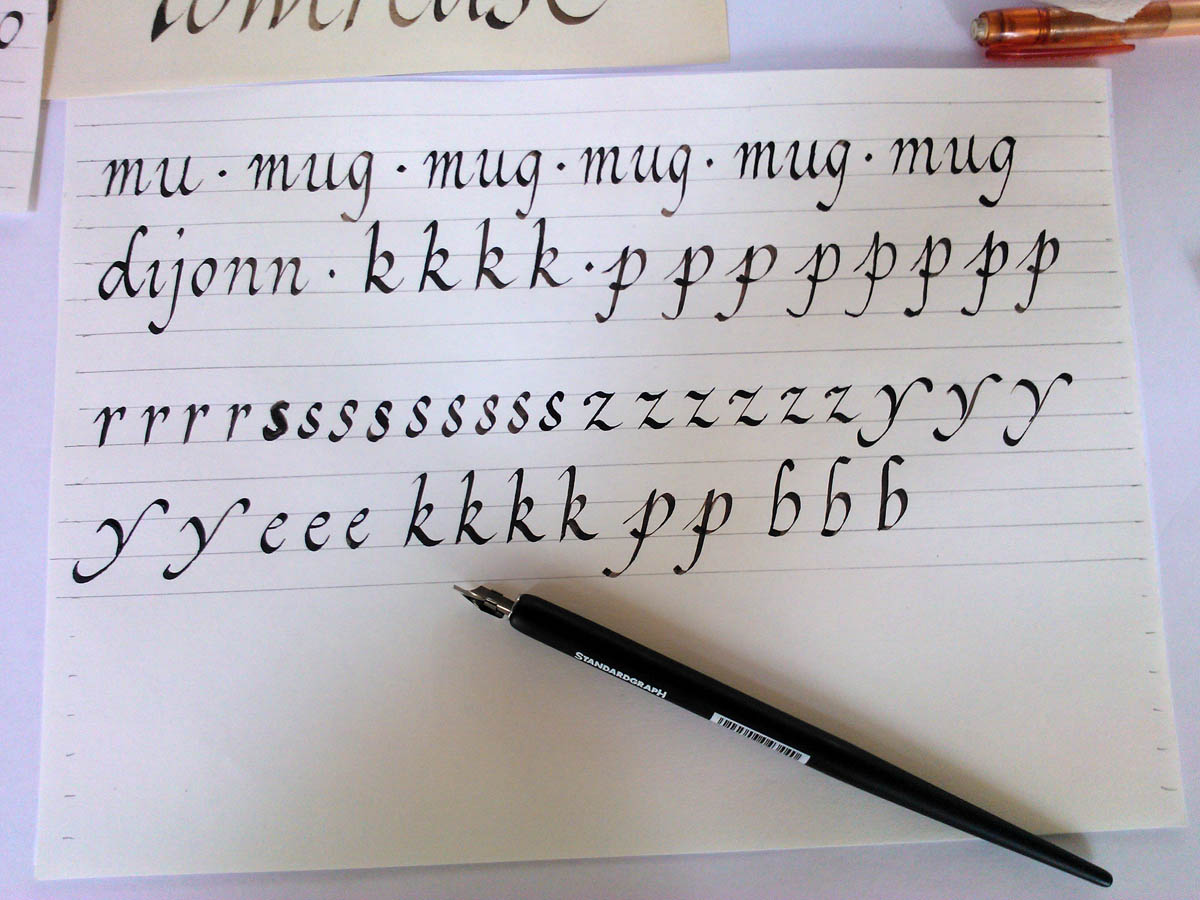 lowercase
mu · mug · mug · mug · mug · mug
dijonn · k k k k · p p p p p p p p
r r r r s s s s s s s s s z z z z z z y y y
y y e e e k k k k p p b b b
STANDARDGRAPH